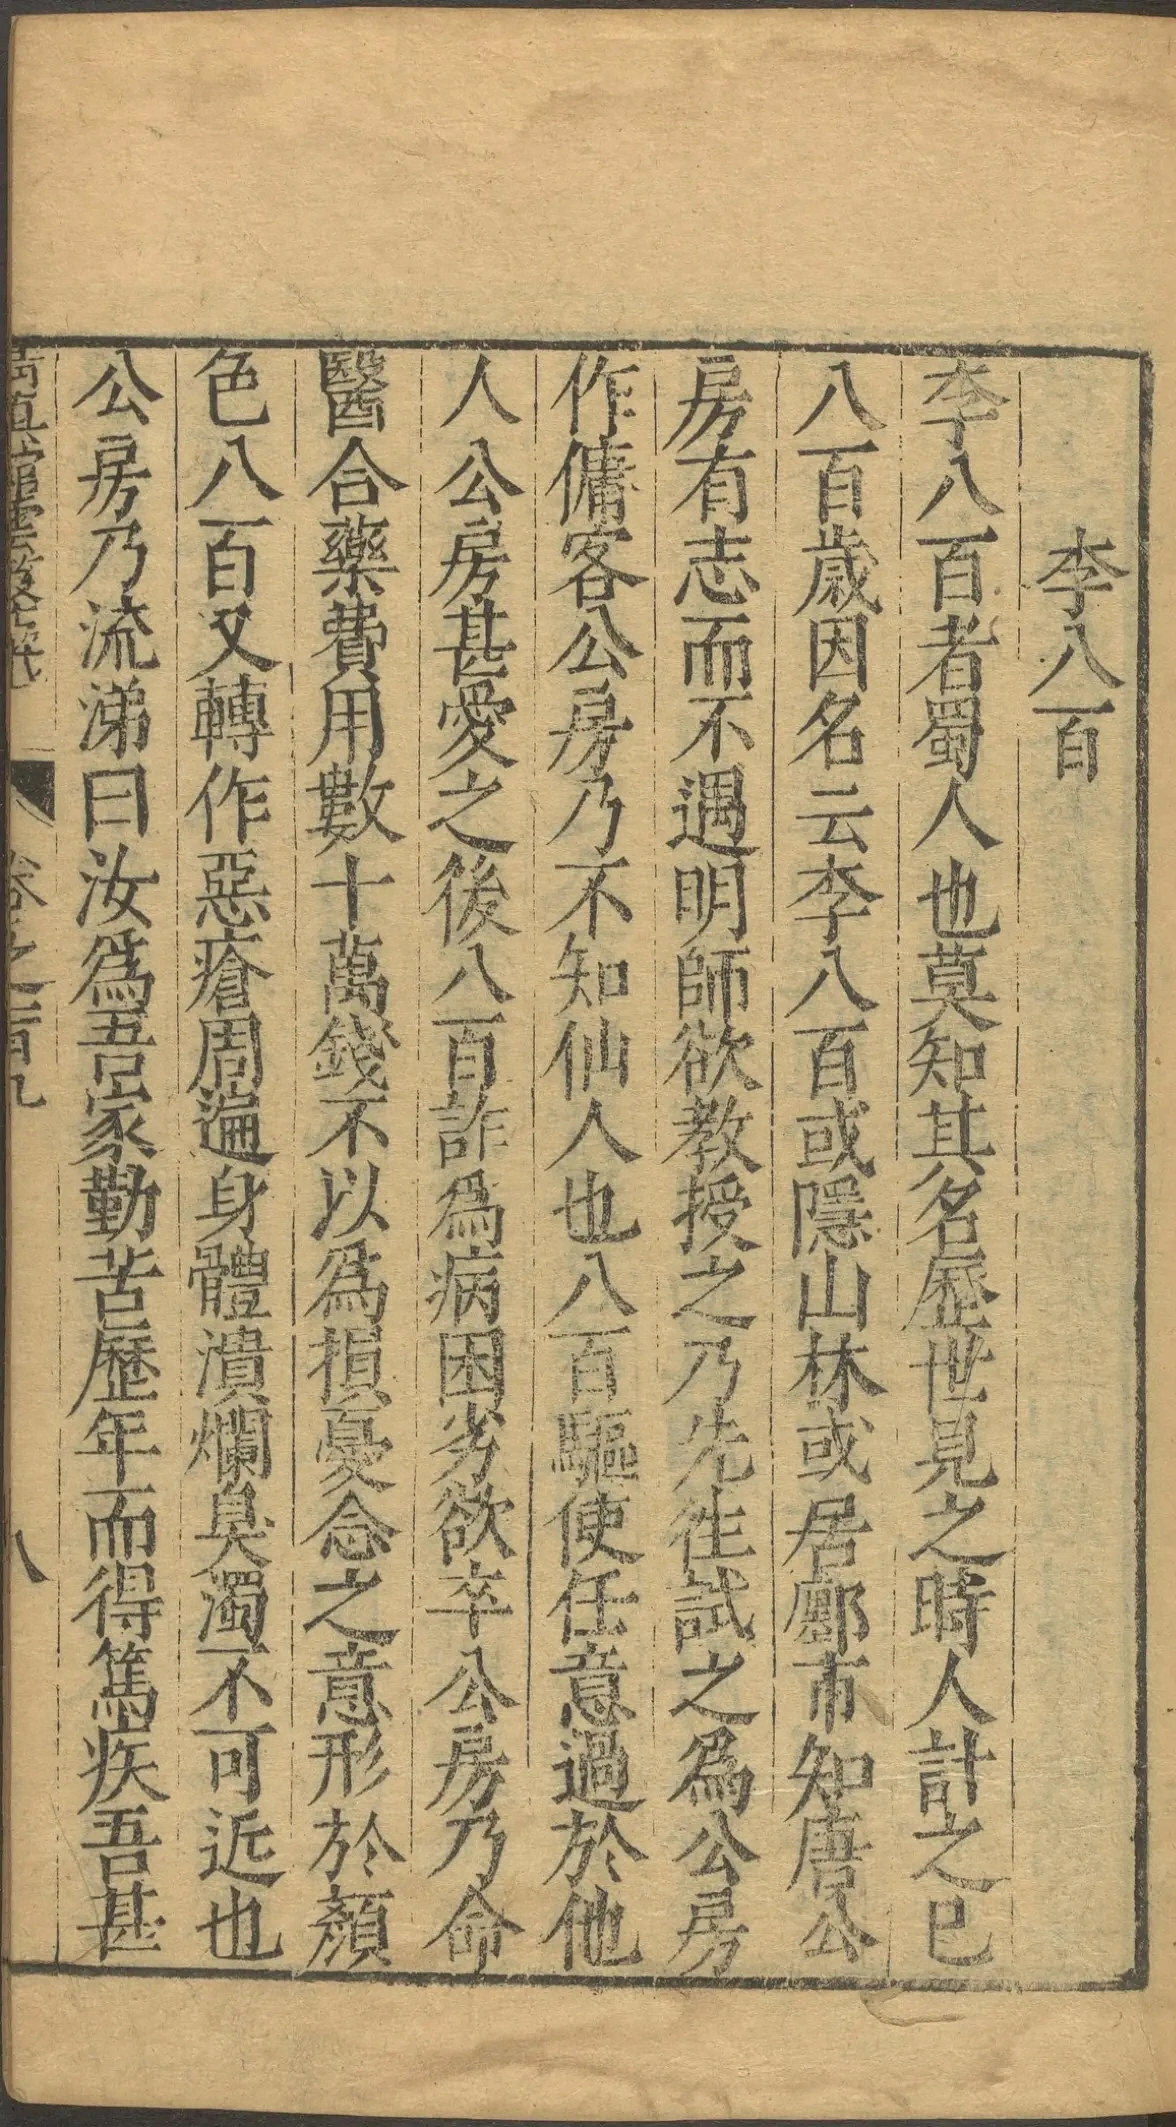 李八百
李八百者蜀人也莫知其名歷世見之時人計之已
八百歳因名云李八百或隱山林或居鄽市知唐公
房有志而不遇明師欲教授之乃先徃試之爲公房
作傭客公房乃不知仙人也八百驅使任意過於他
人公房甚愛之後八百詐爲病困劣欲卒公房乃命
醫合藥費用數十萬錢不以爲損憂念之意形於顏
色八百又轉作惡瘡周遍身體潰爛臭濁不可近也
公房乃流涕曰汝爲吾家勤苦歷年而得篤疾吾甚
卷之一百九
八